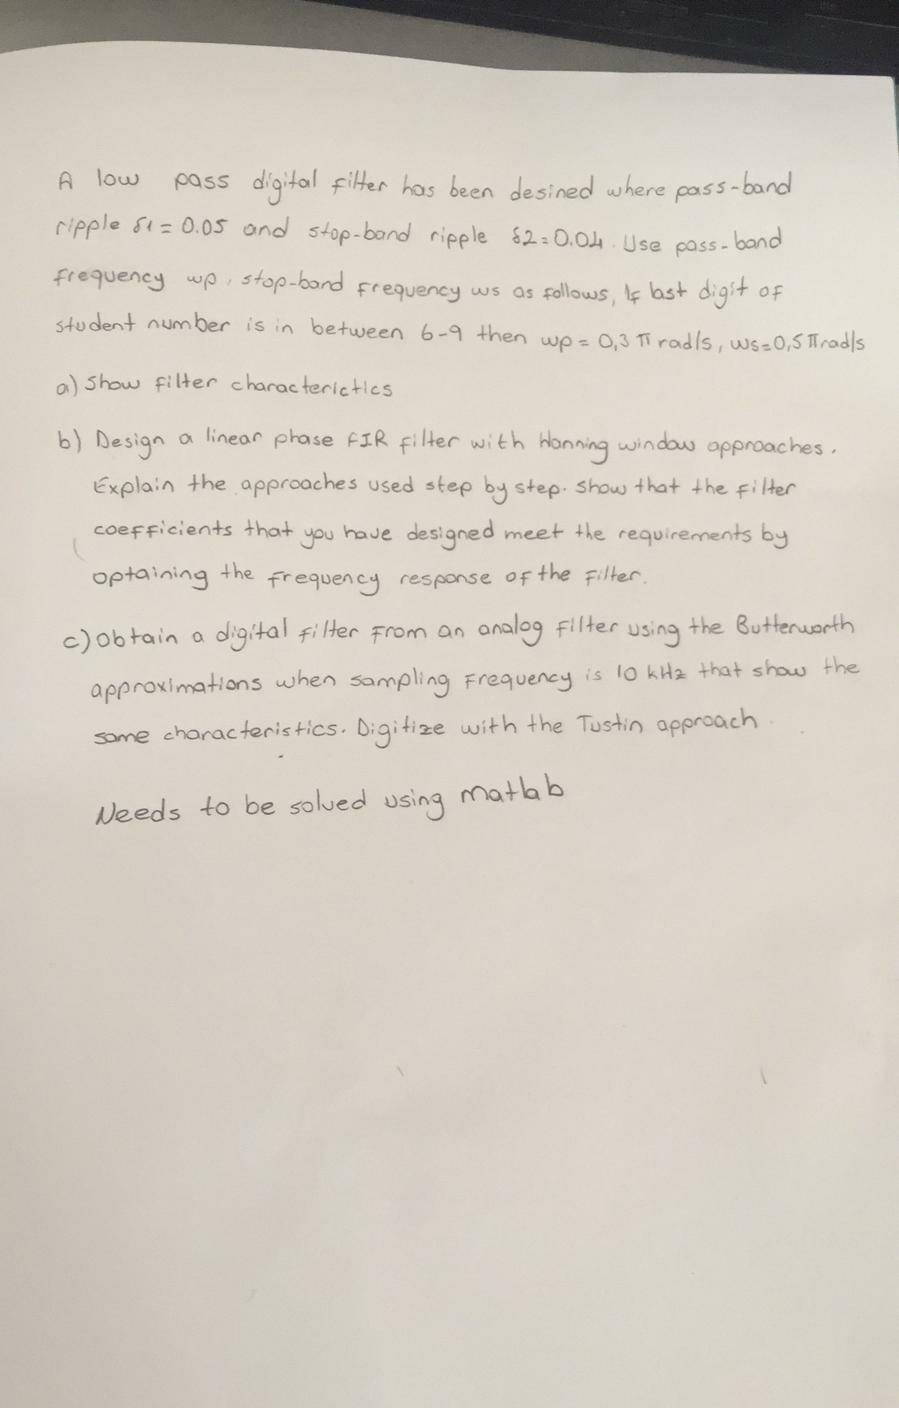 A low pass digital filter has been desined where pass-band
ripple δ1 = 0.05 and stop-band ripple δ2=0.04. Use pass-band
frequency wp, stop-band frequency ws as follows, If last digit of
student number is in between 6-9 then wp = 0,3 π rad/s, ws=0,5 π rad/s
a) Show filter characterictics
b) Design a linear phase FIR filter with Hanning window approaches.
Explain the approaches used step by step. Show that the filter
coefficients that you have designed meet the requirements by
optaining the frequency response of the filter.
c) Obtain a digital filter from an analog filter using the Butterworth
approximations when sampling frequency is 10 kHz that show the
same characteristics. Digitize with the Tustin approach.
Needs to be solved using matlab